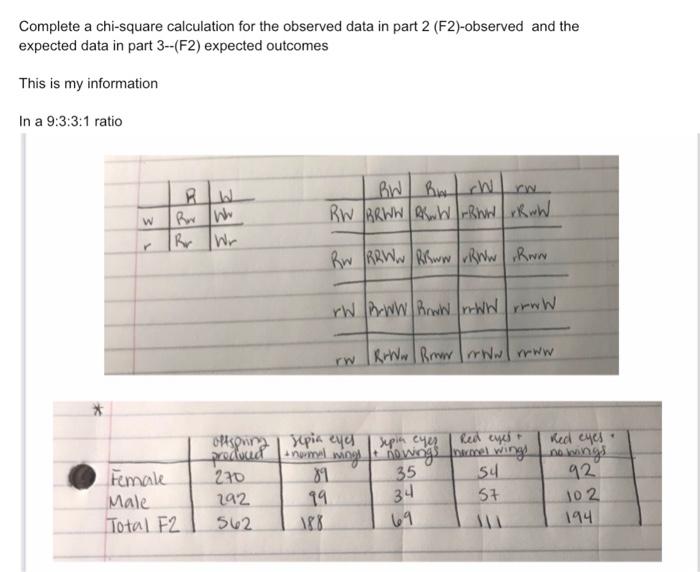 Complete a chi-square calculation for the observed data in part 2 (F2)-observed and the
expected data in part 3--(F2) expected outcomes
This is my information
In a 9:3:3:1 ratio
R W
w Rw Ww
r Rr Wr
RW Rw rW rw
RW RRWW RRwW rRWW rRwW
Rw RRWw RRww rRWw rRww
rW RrWW RrwW rrWW rrwW
rw RrWw Rrww rrWw rrww
*
offspring produced sepia eyes + normal wings sepia eyes + no wings Red eyes + normal wings Red eyes + no wings
Female 270 89 35 54 92
Male 292 99 34 57 102
Total F2 562 188 69 111 194